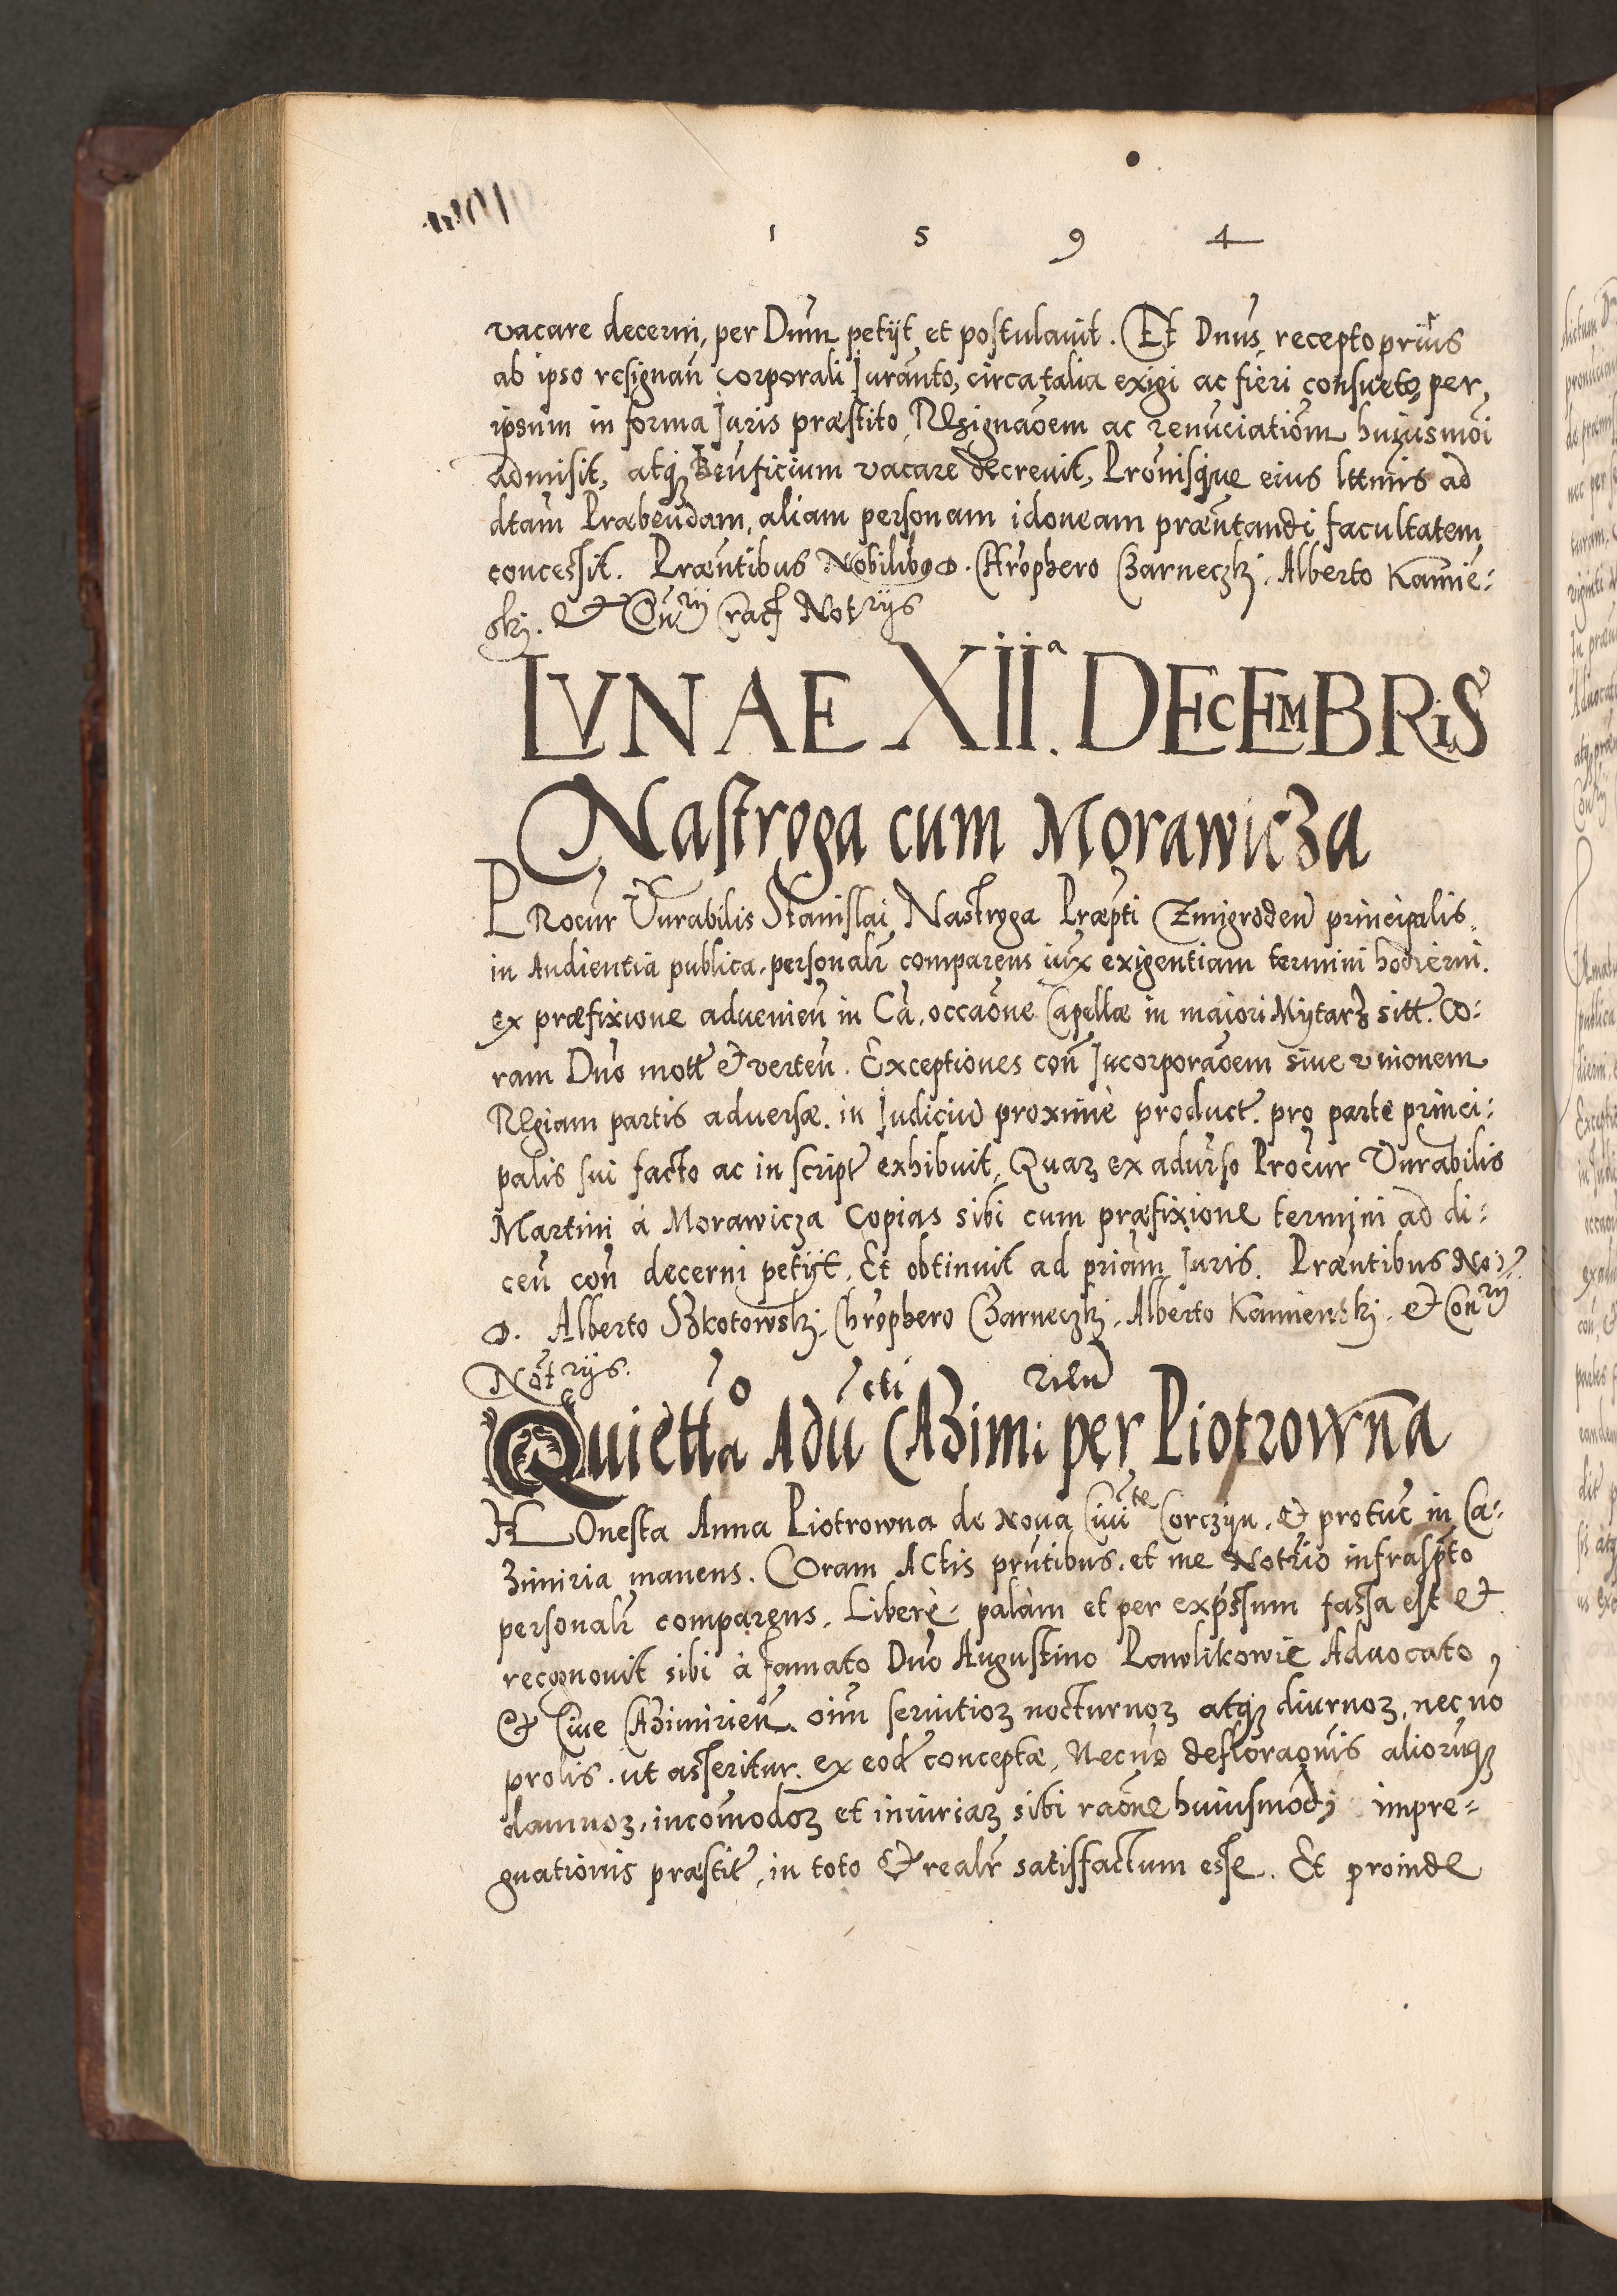 1 5 9 4
vacare decerni, per Dnum petijt et postulauit. Et Dnus recepto prius
ab ipso resignañ corporali Juranto, circa talia exigi ac fieri consueto, per
ipsum in forma Juris præstito, Resignaõem ac renunciatiõem huiusmõi
admisit, atq₃ Benficium vacare decreuit, Prouisque eius lttimis ad
dtam Præbendam, aliam personam idoneam præntandi facultatem
concessit. Præntibus Nobilibus D. Chrõphero Czarneczkj, Alberto Kamie:
skj. & Con^rij Crac^s Not^rijs
LVNAE XII^a. DECEMBRIS
Nastroga cum Morawicza
PRocur Vnrabilis Stanislai Nastroga Præpti Zmigroden principalis,
in Audientia publica, personalr comparens iux exigentiam termini hodierni.
ex præfixione advenieñ in Cã, occaõne Capellæ in maiori Mytarz sitt. Co:
ram Dno mott & verteñ. Exceptiones coñ Incorporaõem siue vnionem
Regiam partis adversæ. in Judiciu proximè product. pro parte princi:
palis sui facto ac in script exhibuit, Quaz ex adurso Procur Vnrabilis
Martini à Morawicza Copias sibi cum præfixione termini ad di:
ceñ coñ decerni petijt, Et obtinuit ad priam Juris. Præntibus No:
D. Alberto Szkotowskj, Chrõphero Czarneczkj, Alberto Kamienskj. & Con^rij
Not^rijs.
Quiett^o^a Adu^cti CAZimi^rien per Piotrowna
HOnesta Anna Piotrowna de Noua Ciui^te Corczyn, & protunc in Ca:
zimiria manens. Coram Actis prntibus, et me Notrio infraspto
personalr comparens, Liberè, palàm et per expssum fassa est &
recognouit sibi à famato Dno Augustino Pawlikowic Aduocato,
& Ciue CAZimirieñ, oim seruitioz nocturnoz atq₃ diurnoz, necno
prolis, ut asseritur, ex eod conceptæ, Necno defloraõnis aliorumq₃
damnoz, incõmodoz et iniuriaz sibi raõne huiusmodi impre:
gnationis præstit, in toto & realr satisfactum esse. Et proinde